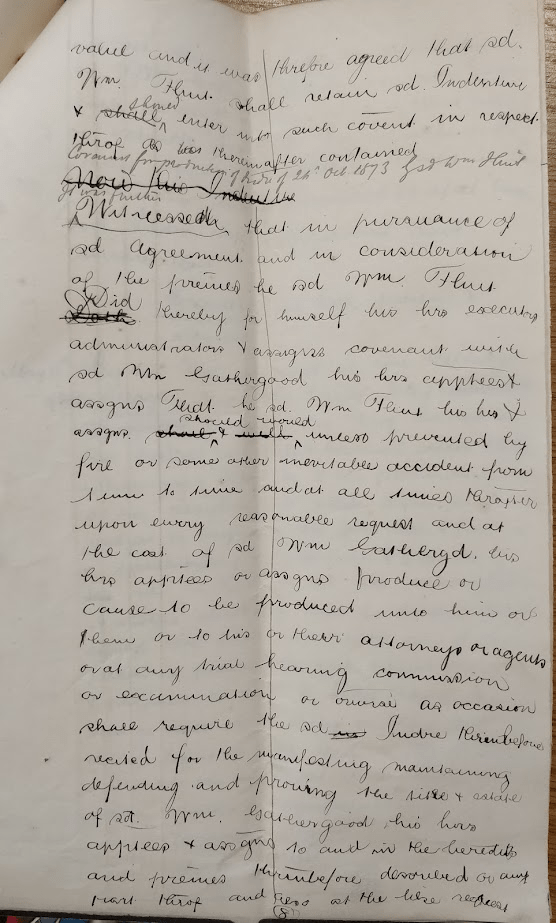 value and it was threfore agreed that sd.
Wm. Flint shall retain sd. Indenture
should
& shall enter into such covent in respect
throf as was thereinafter contained
Covenant for production of 24th Oct 1873 by sd Wm Flint
Now this Indenture
It was further
Witnesseth that in pursuance of
sd Agreement and in consideration
of the premes he sd Wm. Flint
Did
Doth thereby for himself his hrs executors
administrators & assigns covenant with
sd Wm Gathergood his hrs apptees &
assgns That he sd. Wm Flint his hrs &
should would
assgns. shall & will unless prevented by
fire or some other inevitable accident from
time to time and at all times thrafter
upon every reasonable request and at
the cost of sd Wm Gathergd. his
hrs apptees or assgns produce or
cause to be produced unto him or
them or to his or their attorneys or agents
or at any trial hearing commission
or examination or othrwise as occasion
shall require the sd Indre thrinbefore
recited for the manifesting maintaining
defending and proving the title & estate
of sd. Wm. Gathergood his hrs
apptees & assgns to and in the heredits
and premes thrinbefore described or any
part throf and also at the like request
(8)